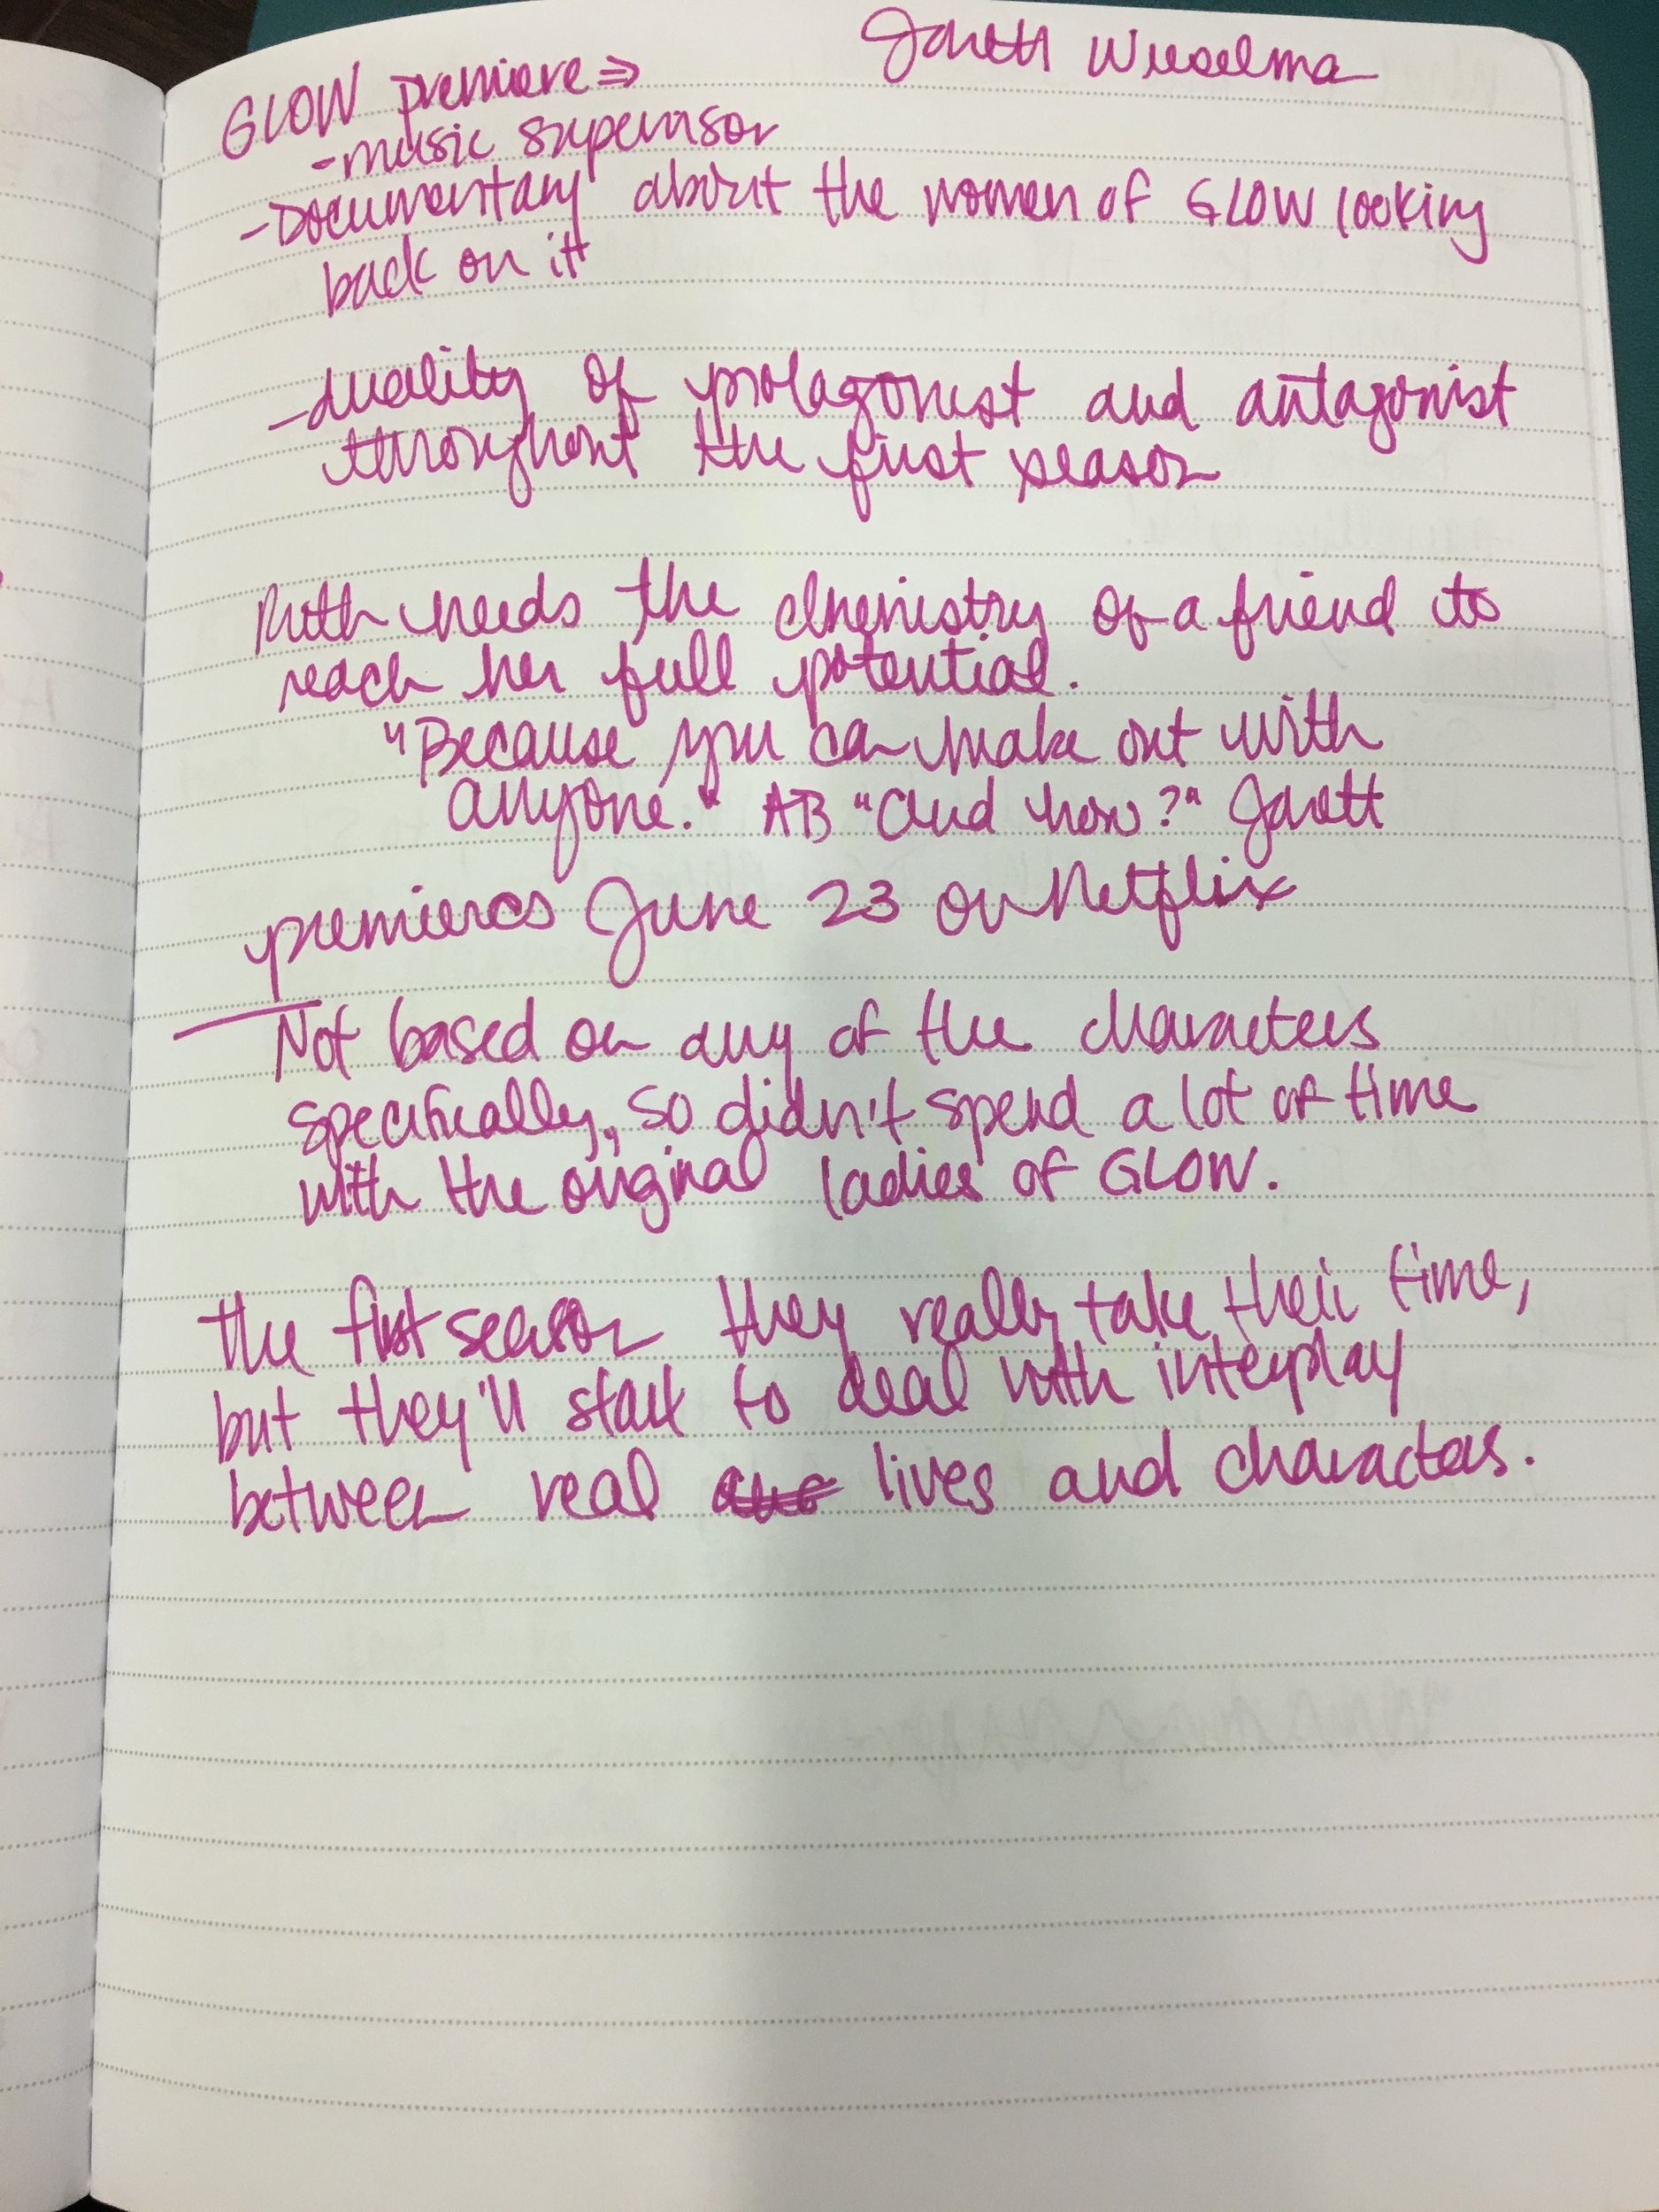 Jarett Wieselma
GLOW premiere ⇒
- music supervisor
- Documentary about the women of GLOW looking
back on it
- duality of protagonist and antagonist
throughout the first season
Ruth needs the chemistry of a friend to
reach her full potential.
"Because you can make out with
anyone." AB "And how?" Jarett
premieres June 23 on Netflix
Not based on any of the characters
specifically, so didn't spend a lot of time
with the original ladies of GLOW.
the first season they really take their time,
but they'll start to deal with interplay
between real lives and characters.